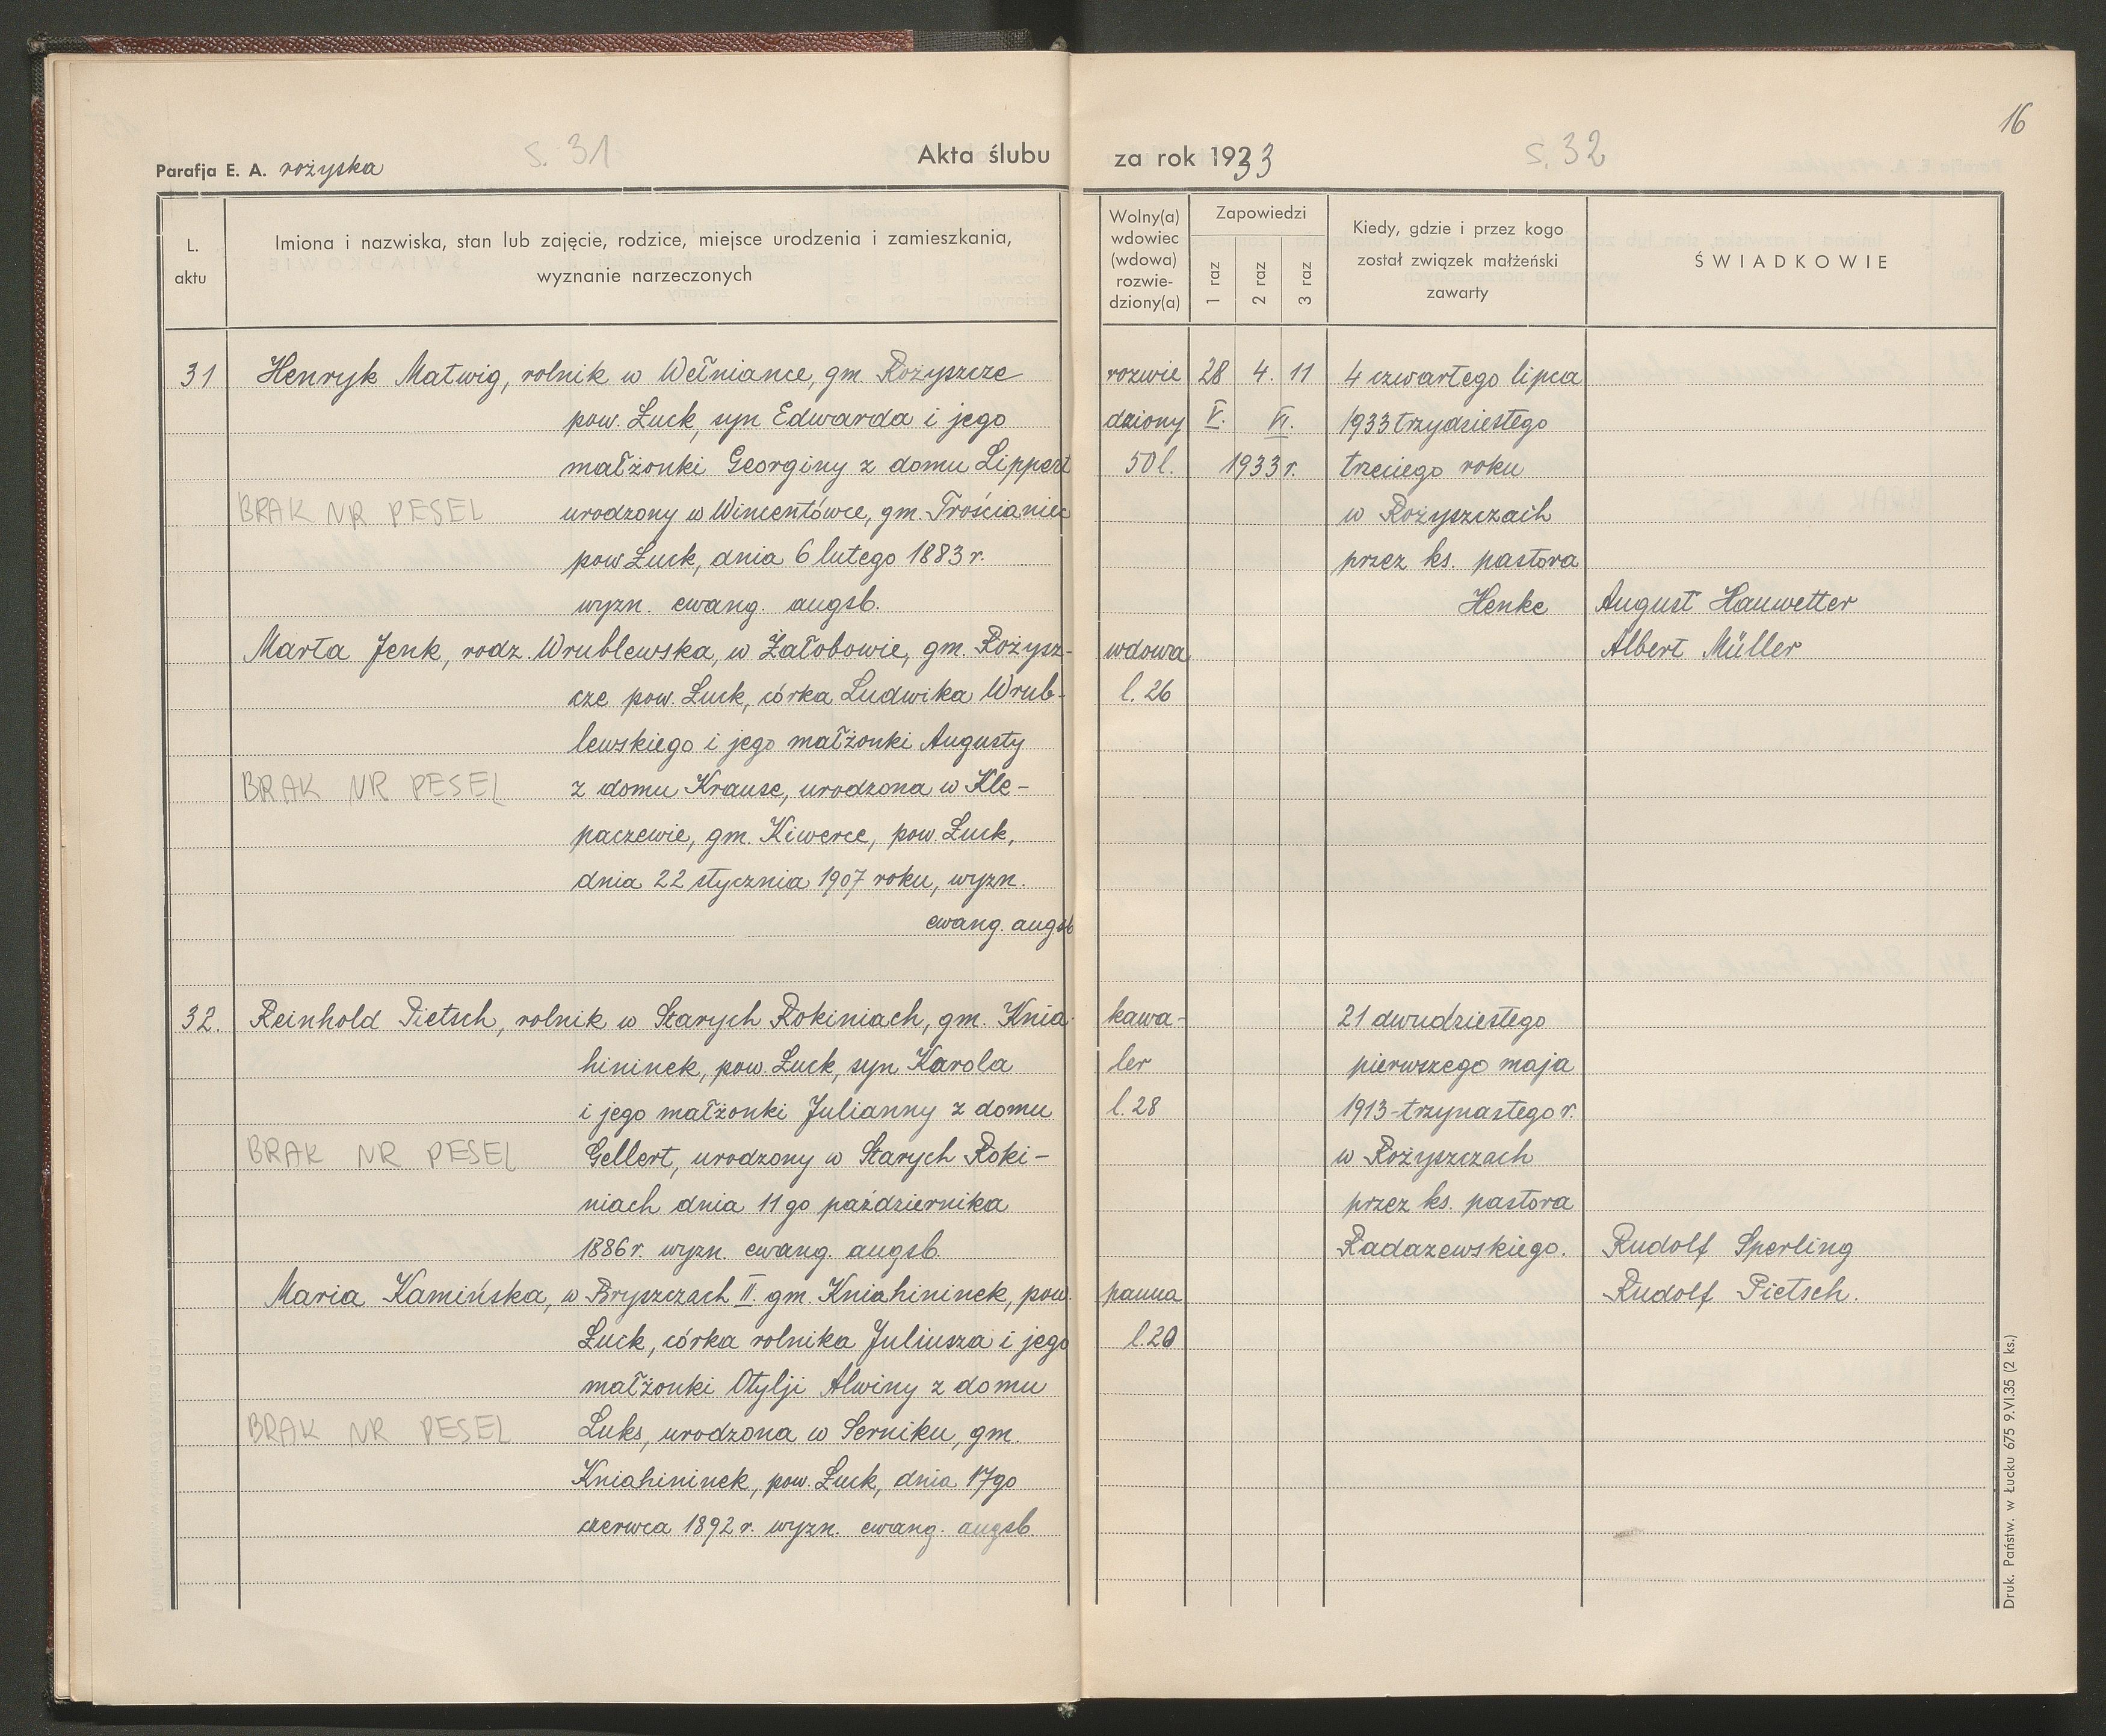 16
s. 31
s. 32
Parafja E. A. rożyska
Akta ślubu za rok 1933
L. aktu
Imiona i nazwiska, stan lub zajęcie, rodzice, miejsce urodzenia i zamieszkania,
wyznanie narzeczonych
Wolny(a)
wdowiec
(wdowa)
rozwie-
dziony(a)
Zapowiedzi
1 raz
2 raz
3 raz
Kiedy, gdzie i przez kogo
został związek małżeński
zawarty
ŚWIADKOWIE
31 Henryk Matwig, rolnik w Wełniance, gm. Rożyszcze
pow. Łuck, syn Edwarda i jego
małżonki Georginy z domu Lippert
BRAK NR PESEL urodzony w Wincentówce, gm. Trościaniec
pow Łuck, dnia 6 lutego 1883 r.
wyzn. ewang. augsb.
rozwie
dziony
50 l.
28 4. 11
V. VI.
1933 r.
4 czwartego lipca
1933 trzydziestego
trzeciego roku
w Rożyszczach
przez ks. pastora
Henke
August Hauwetter
Albert Müller
Marta Jenk, rodz. Wrublewska, w Żałobowie, gm. Rożysz-
cze pow. Łuck, córka Ludwika Wrub-
lewskiego i jego małżonki Augusty
BRAK NR PESEL z domu Krause, urodzona w Kle-
paczewie, gm. Kiwerce, pow. Łuck,
dnia 22 stycznia 1907 roku, wyzn.
ewang. augsb
wdowa
l. 26
32. Reinhold Pietsch, rolnik w Starych Rokiniach, gm. Knia-
hininek, pow. Łuck, syn Karola
i jego małżonki Julianny z domu
BRAK NR PESEL Gellert, urodzony w Starych Roki-
niach dnia 11 go października
1886 r. wyzn. ewang. augsb.
kawa-
ler
l. 28
21 dwudziestego
pierwszego maja
1913 - trzynastego r.
w Rożyszczach
przez ks. pastora
Radazewskiego.
Rudolf Sperling
Rudolf Pietsch.
Maria Kamińska, w Bryszczach II. gm. Kniahininek, pow.
Łuck, córka rolnika Juliusza i jego
małżonki Otylji Alwiny z domu
BRAK NR PESEL Luks, urodzona w Serniku, gm.
Kniahininek, pow. Łuck, dnia 17go
czerwca 1892 r. wyzn. ewang. augsb
panna
l. 20
Druk. Państw. w Łucku 675 9.VI.35 (2 ks.)